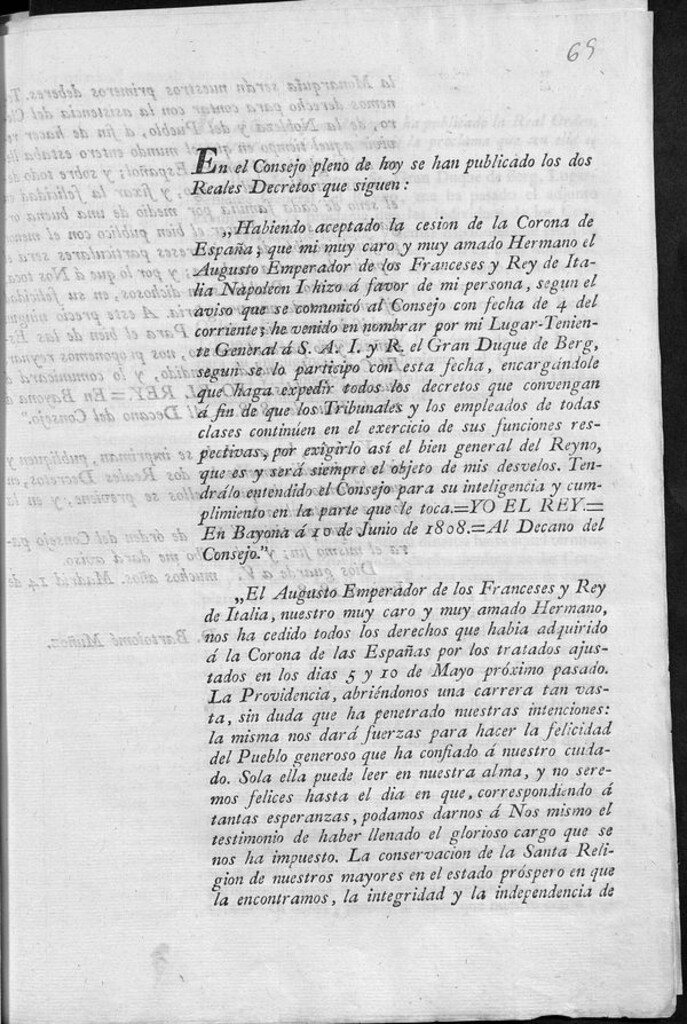 69
En el Consejo pleno de hoy se han publicado los dos
Reales Decretos que siguen:
„Habiendo aceptado la cesion de la Corona de
España, que mi muy caro y muy amado Hermano el
Augusto Emperador de los Franceses y Rey de Ita-
lia Napoleon I hizo á favor de mi persona, segun el
aviso que se comunicó al Consejo con fecha de 4 del
corriente; he venido en nombrar por mi Lugar-Tenien-
te General á S. A. I. y R. el Gran Duque de Berg,
segun se lo participo con esta fecha, encargándole
que haga expedir todos los decretos que convengan
á fin de que los Tribunales y los empleados de todas
clases continúen en el exercicio de sus funciones res-
pectivas, por exigirlo así el bien general del Reyno,
que es y será siempre el objeto de mis desvelos. Ten-
drálo entendido el Consejo para su inteligencia y cum-
plimiento en la parte que le toca.=YO EL REY.=
En Bayona á 10 de Junio de 1808.=Al Decano del
Consejo."
„El Augusto Emperador de los Franceses y Rey
de Italia, nuestro muy caro y muy amado Hermano,
nos ha cedido todos los derechos que habia adquirido
á la Corona de las Españas por los tratados ajus-
tados en los dias 5 y 10 de Mayo próximo pasado.
La Providencia, abriéndonos una carrera tan vas-
ta, sin duda que ha penetrado nuestras intenciones:
la misma nos dará fuerzas para hacer la felicidad
del Pueblo generoso que ha confiado á nuestro cuida-
do. Sola ella puede leer en nuestra alma, y no sere-
mos felices hasta el dia en que, correspondiendo á
tantas esperanzas, podamos darnos á Nos mismo el
testimonio de haber llenado el glorioso cargo que se
nos ha impuesto. La conservacion de la Santa Reli-
gion de nuestros mayores en el estado próspero en que
la encontramos, la integridad y la independencia de